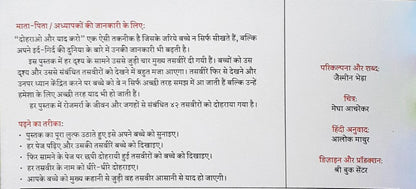 माता-पिता / अध्यापकों की जानकारी के लिए:
"दोहराओ और याद करो" एक ऐसी तकनीक है जिसके जरिये बच्चे न सिर्फ सीखते हैं, बल्कि
अपने इर्द-गिर्द की दुनिया के बारे में उनकी जानकारी भी बढ़ती है।
इस पुस्तक में हर दृश्य के सामने उससे जुड़ी चार मुख्य तसवीरें दी गयी हैं। बच्चों को उस
दृश्य और उससे संबंधित तसवीरों को देखने में बहुत मजा आएगा। तसवीरें फिर से देखने और
उनपर ध्यान केंद्रित करने पर बच्चों को वे न सिर्फ अच्छी तरह समझ में आ जाती हैं बल्कि उन्हें
हमेशा के लिए अच्छी तरह याद भी हो जाती हैं।
हर पुस्तक में रोजमर्रा के जीवन और जगहों से संबंधित ४२ तसवीरों को दोहराया गया है।
पढ़ने का तरीका:
• पुस्तक का पूरा लुत्फ उठाते हुए इसे अपने बच्चे को सुनाइए।
• हर पेज पढ़िए और उसकी तसवीरें बच्चे को दिखाइए।
• फिर सामने के पेज पर छपी दोहरायी हुई तसवीरों को बच्चे को दिखाइए।
• हर तसवीर के नाम को धीरे-धीरे दोहराइए।
• आपके बच्चे को मुख्य कहानी से जुड़ी वह तसवीर आसानी से याद हो जाएगी।
परिकल्पना और शब्द:
जैस्मीन भेड़ा
चित्र:
मेघा आचरेकर
हिंदी अनुवाद:
आलोक माथुर
डिज़ाइन और प्रॉडक्शन:
श्री बुक सेंटर